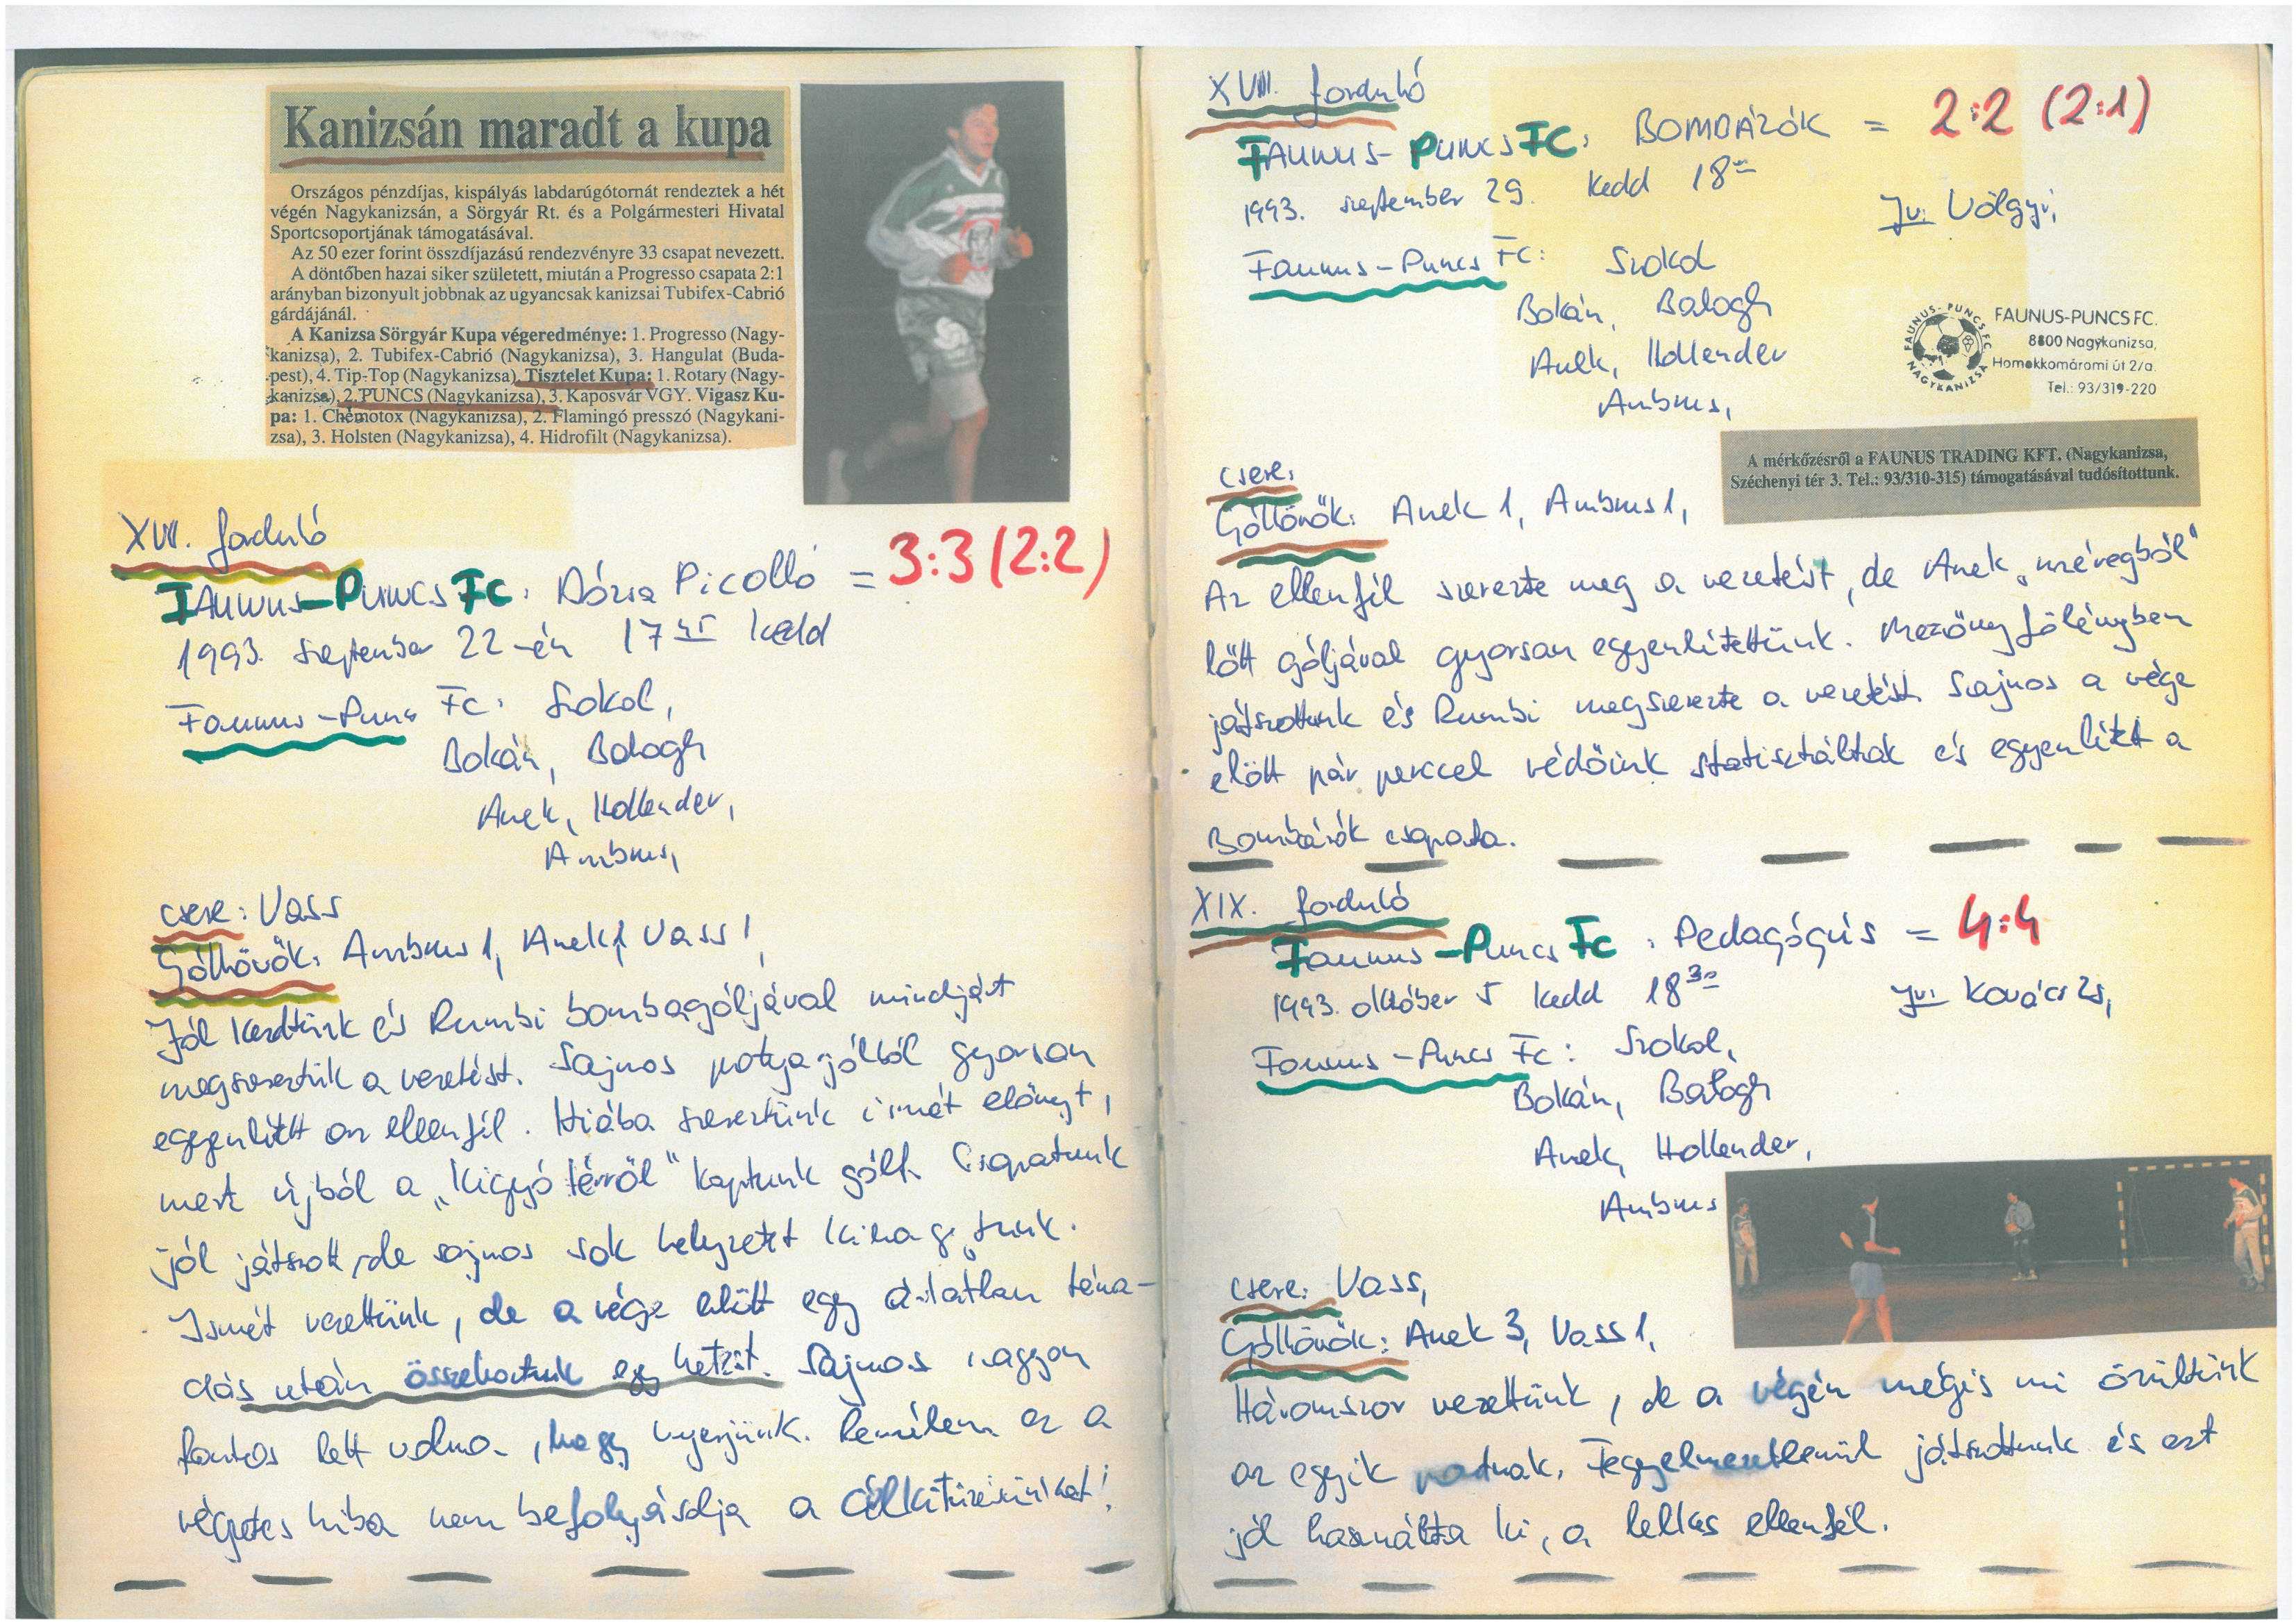 Kanizsán maradt a kupa
Országos pénzdíjas, kispályás labdarúgótornát rendeztek a hét
végén Nagykanizsán, a Sörgyár Rt. és a Polgármesteri Hivatal
Sportcsoportjának támogatásával.
Az 50 ezer forint összdíjazású rendezvényre 33 csapat nevezett.
A döntőben hazai siker született, miután a Progresso csapata 2:1
arányban bizonyult jobbnak az ugyancsak kanizsai Tubifex-Cabrió
gárdájánál.
A Kanizsa Sörgyár Kupa végeredménye: 1. Progresso (Nagy-
kanizsa), 2. Tubifex-Cabrió (Nagykanizsa), 3. Hangulat (Buda-
pest), 4. Tip-Top (Nagykanizsa). Tisztelet Kupa: 1. Rotary (Nagy-
kanizsa), 2. PUNCS (Nagykanizsa), 3. Kaposvár VGY. Vigasz Ku-
pa: 1. Chemotox (Nagykanizsa), 2. Flamingó presszó (Nagykani-
zsa), 3. Holsten (Nagykanizsa), 4. Hidrofilt (Nagykanizsa).
XVII. forduló
FAUNUS-PUNCS FC: Dózsa Picolló = 3:3 (2:2)
1993. szeptember 22-én 17 45 kedd
Faunus-Puncs FC: Szokol,
Bokán, Balogh
Anek, Hollender,
Ambrus,
csere: Vass
Góllövők: Ambrus 1, Anek 1, Vass 1,
Jól kezdtünk és Rumbi bombagóljával mindjárt
megszereztük a vezetést. Sajnos potyagólból gyorsan
egyenlített az ellenfél. Hiába szereztünk ismét előnyt,
mert újból a „Kigyó térről" kaptunk gólt. Csapatunk
jól játszott, de sajnos sok helyzetet kihagytunk.
Ismét vezettünk, de a vége előtt egy ártatlan táma-
dás után összehoztunk egy hetest. Sajnos nagyon
fontos lett volna, hogy nyerjünk. Remélem ez a
végzetes hiba nem befolyásolja a célkitűzésünket!
XVIII. forduló
FAUNUS-PUNCS FC: BOMBÁZÓK = 2:2 (2:1)
1993. szeptember 29. kedd 18 00
Jv: Völgyi,
Faunus-Puncs FC: Szokol
Bokán, Balogh
Anek, Hollender
Ambrus,
FAUNUS-PUNCS FC NAGYKANIZSA
FAUNUS-PUNCS FC.
8800 Nagykanizsa,
Homokkomáromi út 2/a.
Tel.: 93/319-220
A mérkőzésről a FAUNUS TRADING KFT. (Nagykanizsa,
Széchenyi tér 3. Tel.: 93/310-315) támogatásával tudósítottunk.
csere:
Góllövők: Anek 1, Ambrus 1,
Az ellenfél szerezte meg a vezetést, de Anek „mérgből"
lőtt góljával gyorsan egyenlítettünk. Mezőny fölényben
játszottunk és Rumbi megszerezte a vezetést. Sajnos a vége
előtt pár perccel védőink statisztáltak és egyenlített a
Bombázók csapata.
XIX. forduló
Faunus-Puncs FC: Pedagógus = 4:4
1993. október 5 kedd 18 30
Jv: Kovács Zs,
Faunus-Puncs FC: Szokol,
Bokán, Balogh
Anek, Hollender,
Ambrus
csere: Vass,
Góllövők: Anek 3, Vass 1,
Háromszor vezettünk, de a végén mégis mi örültünk
az egyik pontnak. Fegyelmezetlenül játszottunk és ezt
jól használta ki, a lelkes ellenfél.